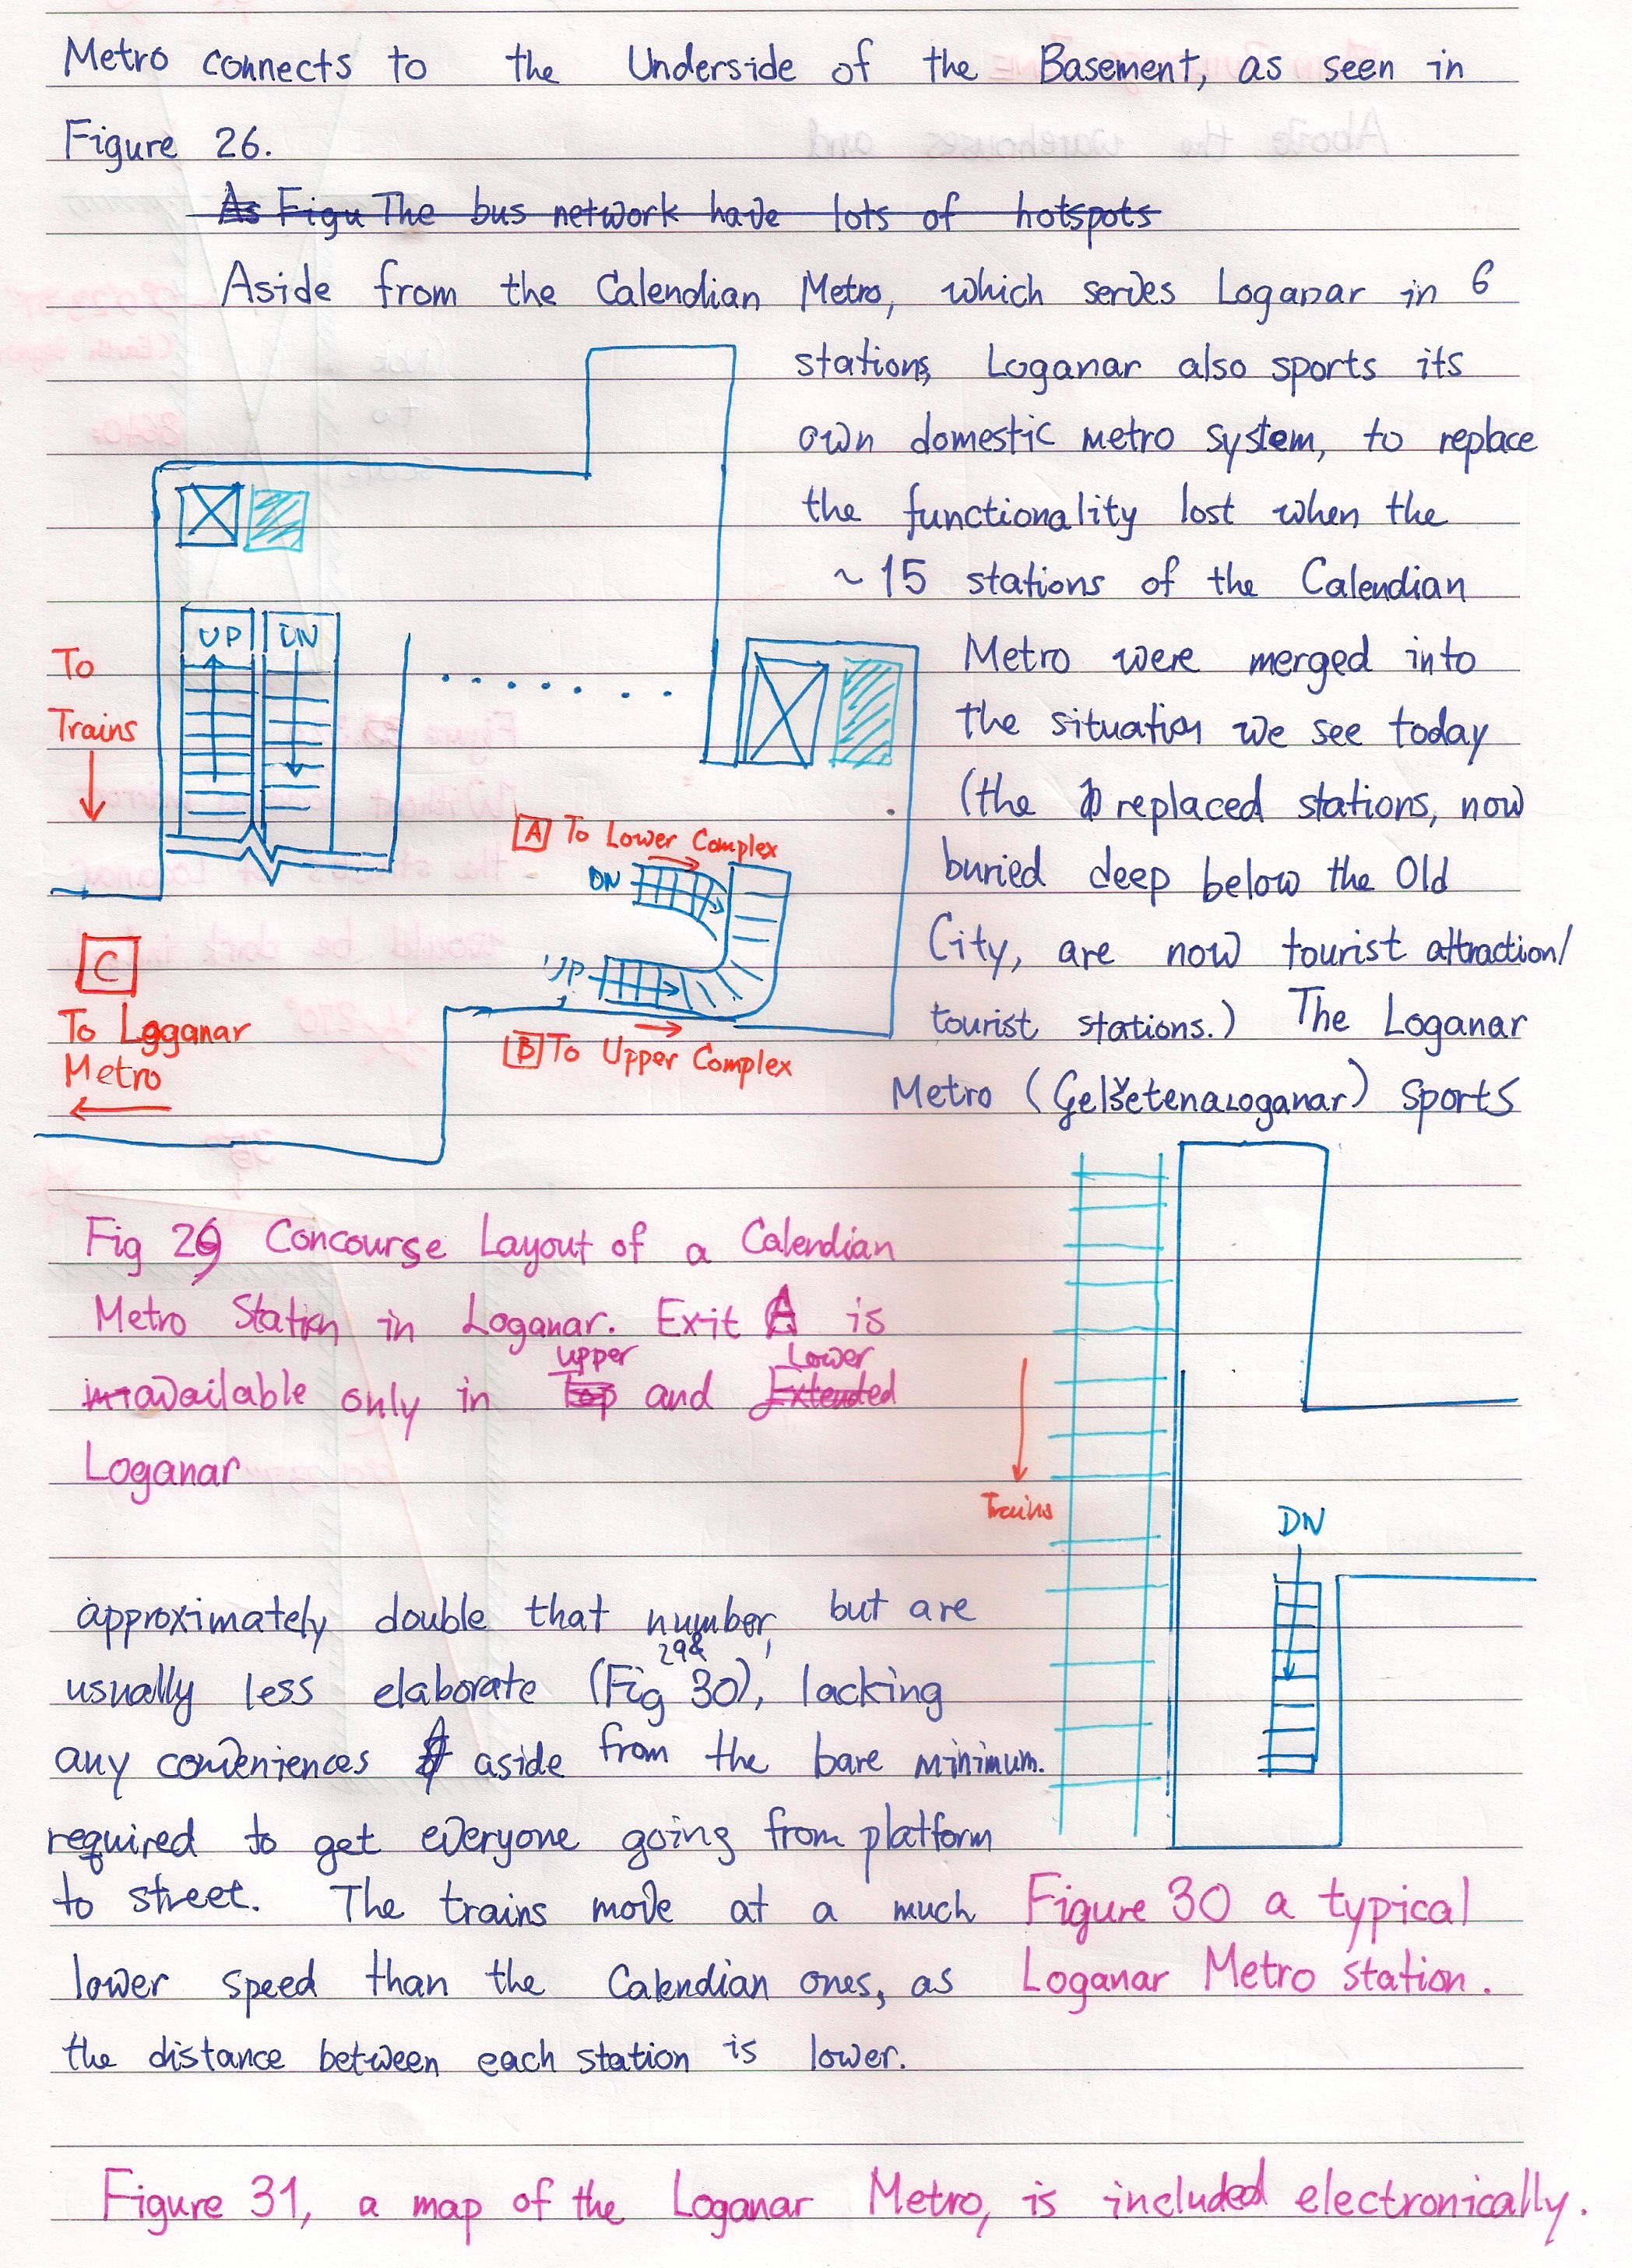 Metro connects to the Underside of the Basement, as seen in
Figure 26.
As Figu The bus network have lots of hotspots
Aside from the Calendian Metro, which serves Loganar in 6
stations, Loganar also sports its
own domestic metro system, to replace
the functionality lost when the
~15 stations of the Calendian
Metro were merged into
the situation we see today
(the replaced stations, now
buried deep below the Old
City, are now tourist attraction/
tourist stations.) The Loganar
Metro (Gelšetenaloganar) sports
UP DN
To
Trains
A To Lower Complex
DN
UP
B To Upper Complex
C
To Loganar
Metro
Fig 29 Concourse Layout of a Calendian
Metro Station in Loganar. Exit A is
upper Lower
available only in top and Extended
Loganar
Trains
DN
approximately double that number, but are
29&
usually less elaborate (Fig 30), lacking
any conveniences aside from the bare minimum.
required to get everyone going from platform
to street. The trains move at a much
lower speed than the Calendian ones, as
the distance between each station is lower.
Figure 30 a typical
Loganar Metro station.
Figure 31, a map of the Loganar Metro, is included electronically.